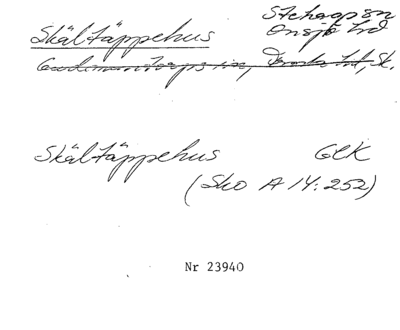 Skältäppehus Stehags sn
Onsjö hd
Gudmuntorps sn, Frosta hd, Sk.
Skältäppehus GEK
(Sko A 14:252)
Nr 23940